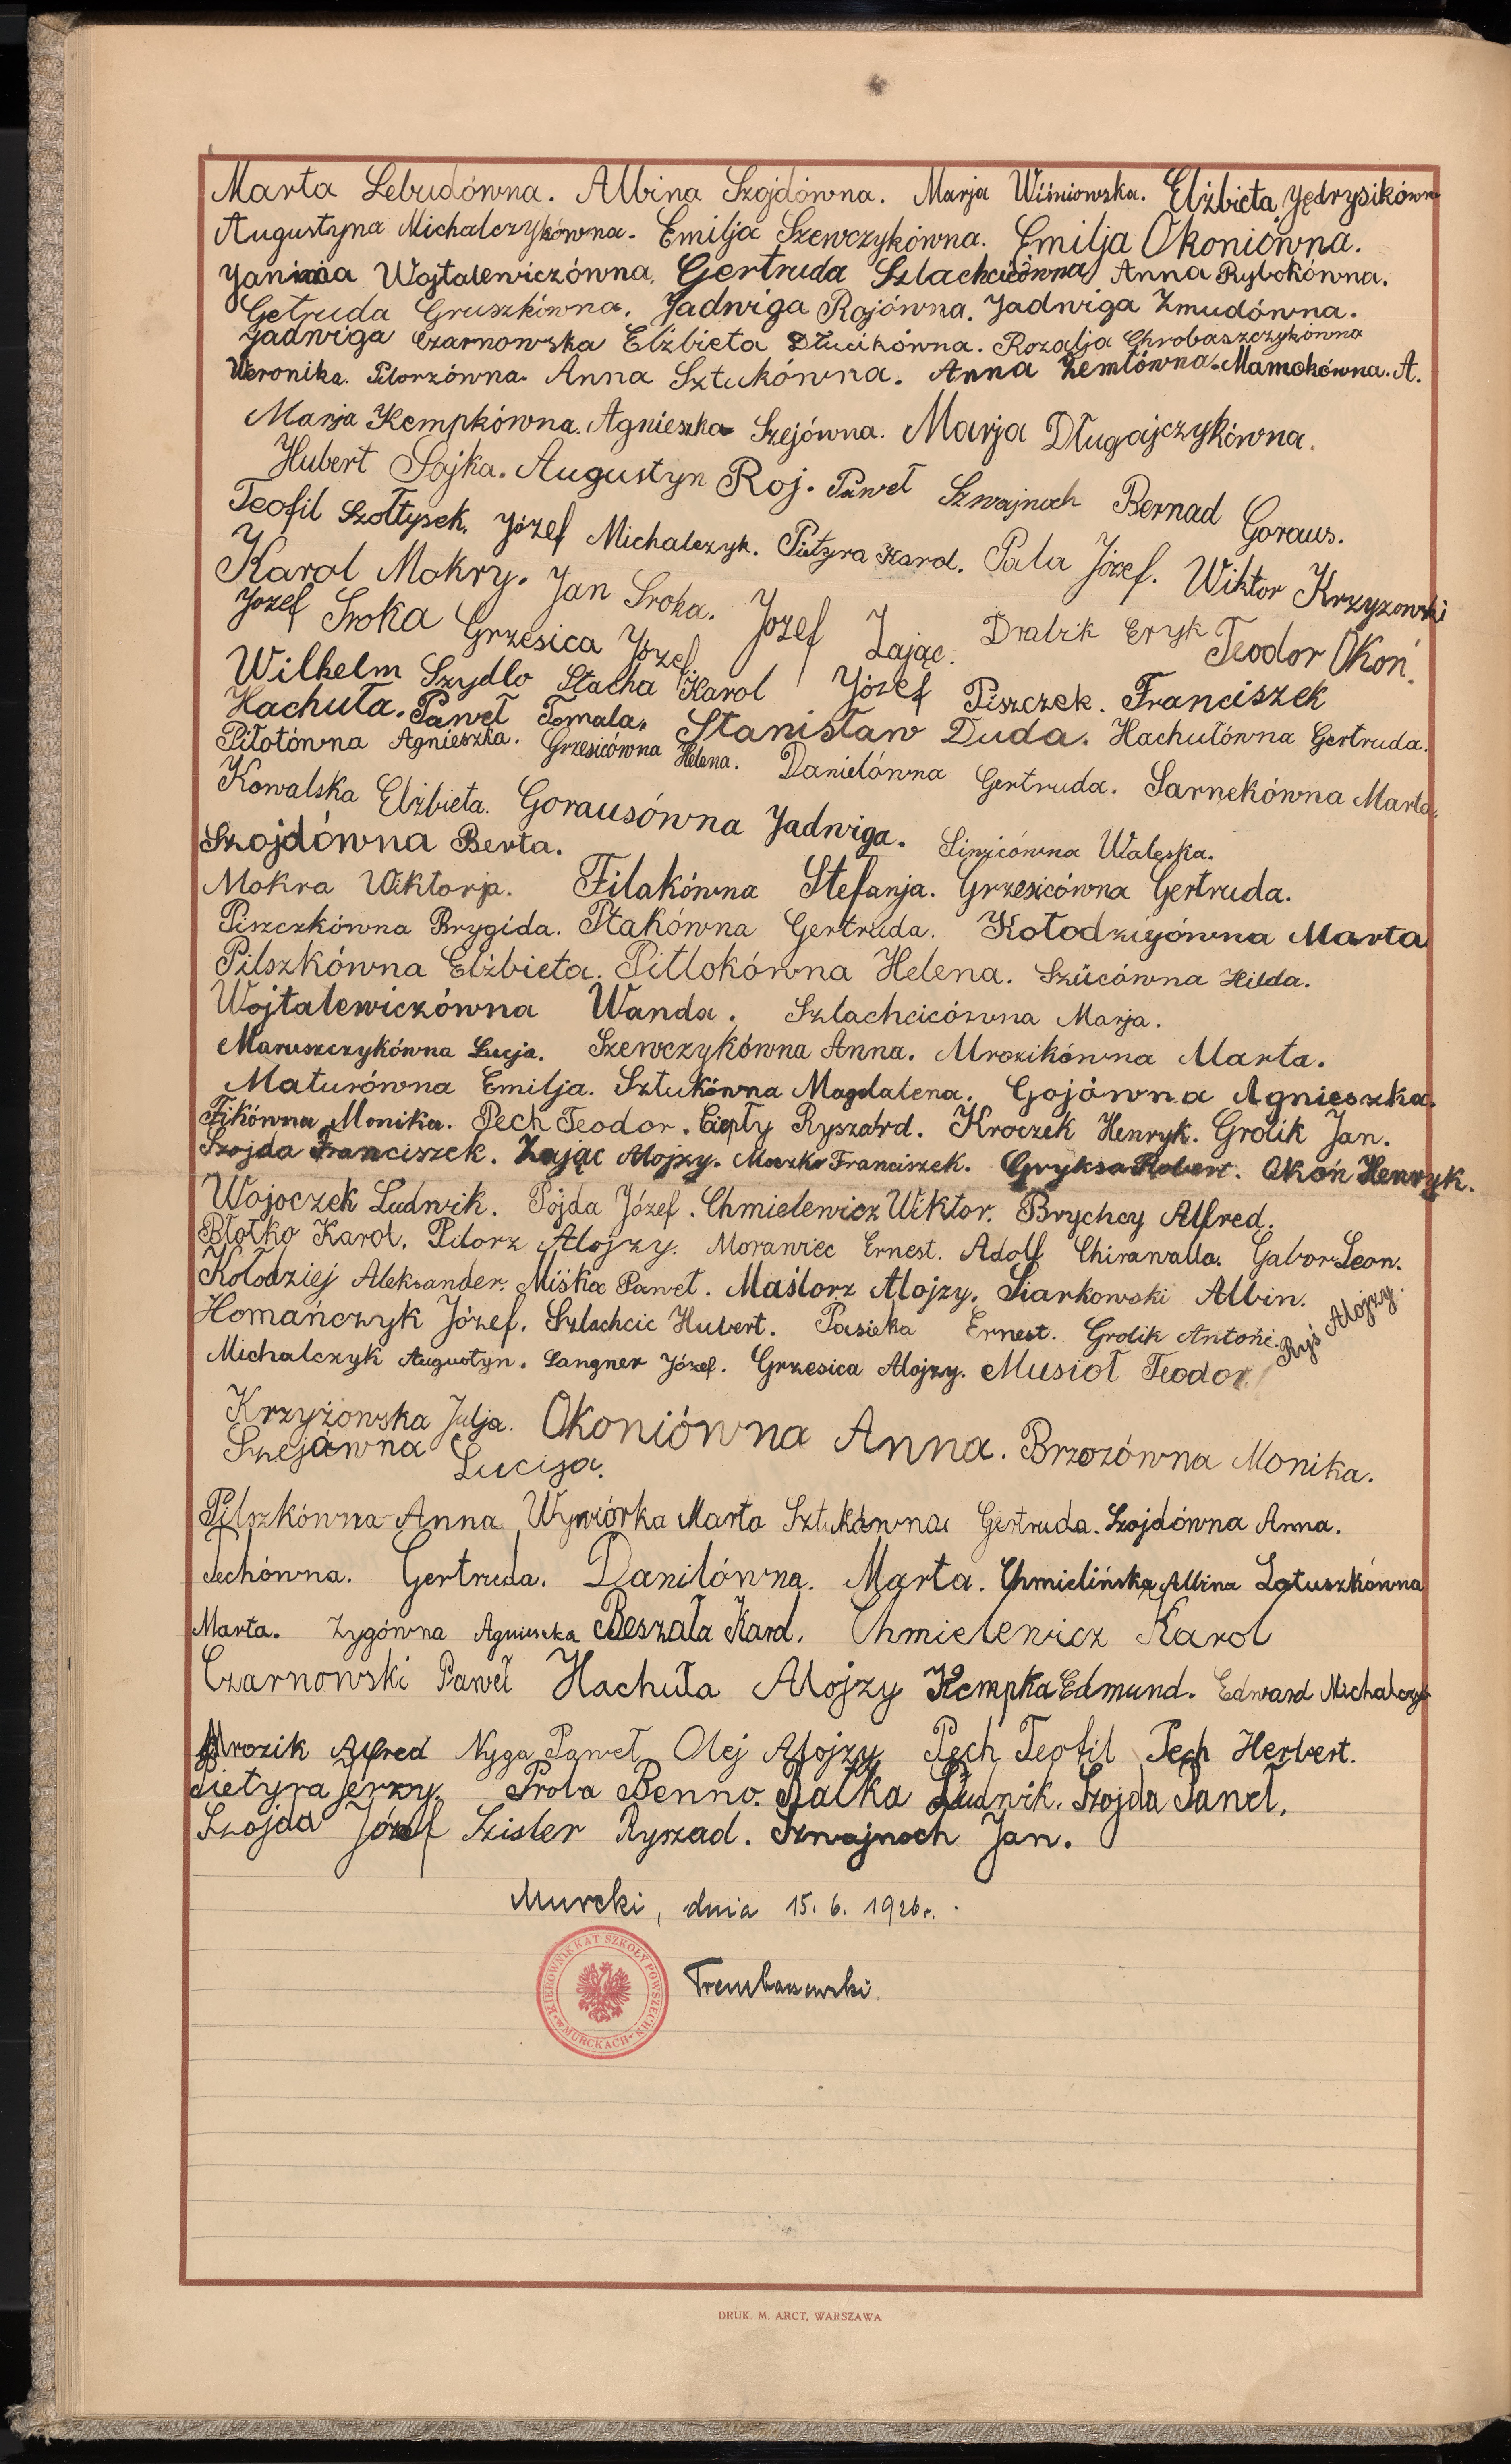 Marta Lebudówna. Albina Szojdówna. Marja Wiśniowska. Elżbieta Jędrysikówn
Augustyna Michalczykówna. Emilja Szewczykówna. Emilja Okoniówna.
Janina Wojtalewiczówna. Gertruda Szlachcicówna Anna Rybokówna.
Getruda Gruszkówna. Jadwiga Rojówna. Jadwiga Żmudówna.
Jadwiga Czarnowska Elżbieta Dłucikówna. Rozalja Chrobaszczykówna
Weronika. Pilorzówna. Anna Sztukówna. Anna Zemłówna. Mamokówna. A.
Marja Kempkówna. Agnieszka Szejówna. Marja Długajczykówna.
Hubert Sojka. Augustyn Roj. Paweł Szwajnoch Bernad Goraus.
Teofil Szołtysek. Józef Michalczyk. Pietyra Karol. Pala Józef. Wiktor Krzyzowski
Karol Mokry. Jan Sroka. Jozef Zając. Dralzik Eryk Teodor Okoń.
Jozef Sroka Grzesica Józef.
Wilhelm Szydlo Stacha Karol Józef Piszczek. Franciszek
Hachuła. Paweł Tomala. Stanisław Duda. Hachułówna Gertruda.
Piłotówna Agnieszka. Grzesicówna Helena. Danielówna Gertruda. Sarnekówna Marta.
Kowalska Elżbieta. Gorausówna Jadwiga. Sinzicówna Waleska.
Szojdówna Berta.
Mokra Wiktorja. Filakówna Stefanja. Grzesicówna Gertruda.
Piszczkówna Brygida. Ptakówna Gertruda. Kołodziejówna Marta
Pilszkówna Elżbieta. Pitlokówna Helena. Szücówna Hilda.
Wojtalewiczówna Wanda. Szlachcicówna Marja.
Maruszczykówna Łucja. Szewczykówna Anna. Mrozikówna Marta.
Maturówna Emilja. Sztukówna Magdalena. Gojówna Agnieszka.
Fikówna Monika. Pech Teodor. Ciepły Ryszard. Kroczek Henryk. Grolik Jan.
Szojda Franciszek. Zając Alojzy. Moczko Franciszek. Gryksa Robert. Okoń Henryk.
Wojoczek Ludwik. Pojda Józef. Chmielewicz Wiktor. Brychcy Alfred.
Błotko Karol. Pilorz Alojzy. Morawiec Ernest. Adolf Chirawalla. Gabor Leon.
Kołodziej Aleksander. Miśka Paweł. Maślorz Alojzy. Siarkowski Albin.
Homańczyk Józef. Szlachcic Hubert. Pasieka Ernest. Grolik Antoni. Ryś Alojzy.
Michalczyk Augustyn. Langner Józef. Grzesica Alojzy. Musioł Teodor.
Krzyżowska Julja. Okoniówna Anna. Brzozówna Monika.
Szejówna Lucija.
Pilszkówna Anna Wywiórka Marta Sztukówna Gertruda. Szojdówna Anna.
Pechówna. Gertruda. Danilówna. Marta. Chmielińska Albina Latuszkówna
Marta. Zygówna Agnieszka Beszała Karol. Chmielewicz Karol
Czarnowski Paweł Hachuła Alojzy Kempka Edmund. Edward Michalczyk
Mrozik Alfred Nyga Paweł Olej Alojzy Pech Teofil Pech Herbert.
Pietyra Jerzy. Prola Benno. Ratka Ludwik. Szojda Paweł.
Szojda Józef Szisler Ryszad. Szwajnoch Jan.
Murcki, dnia 15. 6. 1926 r.
Trembaszewski
KIEROWNIKKAT SZKOŁY POWSZECHN. w MURCKACH
DRUK. M. ARCT, WARSZAWA